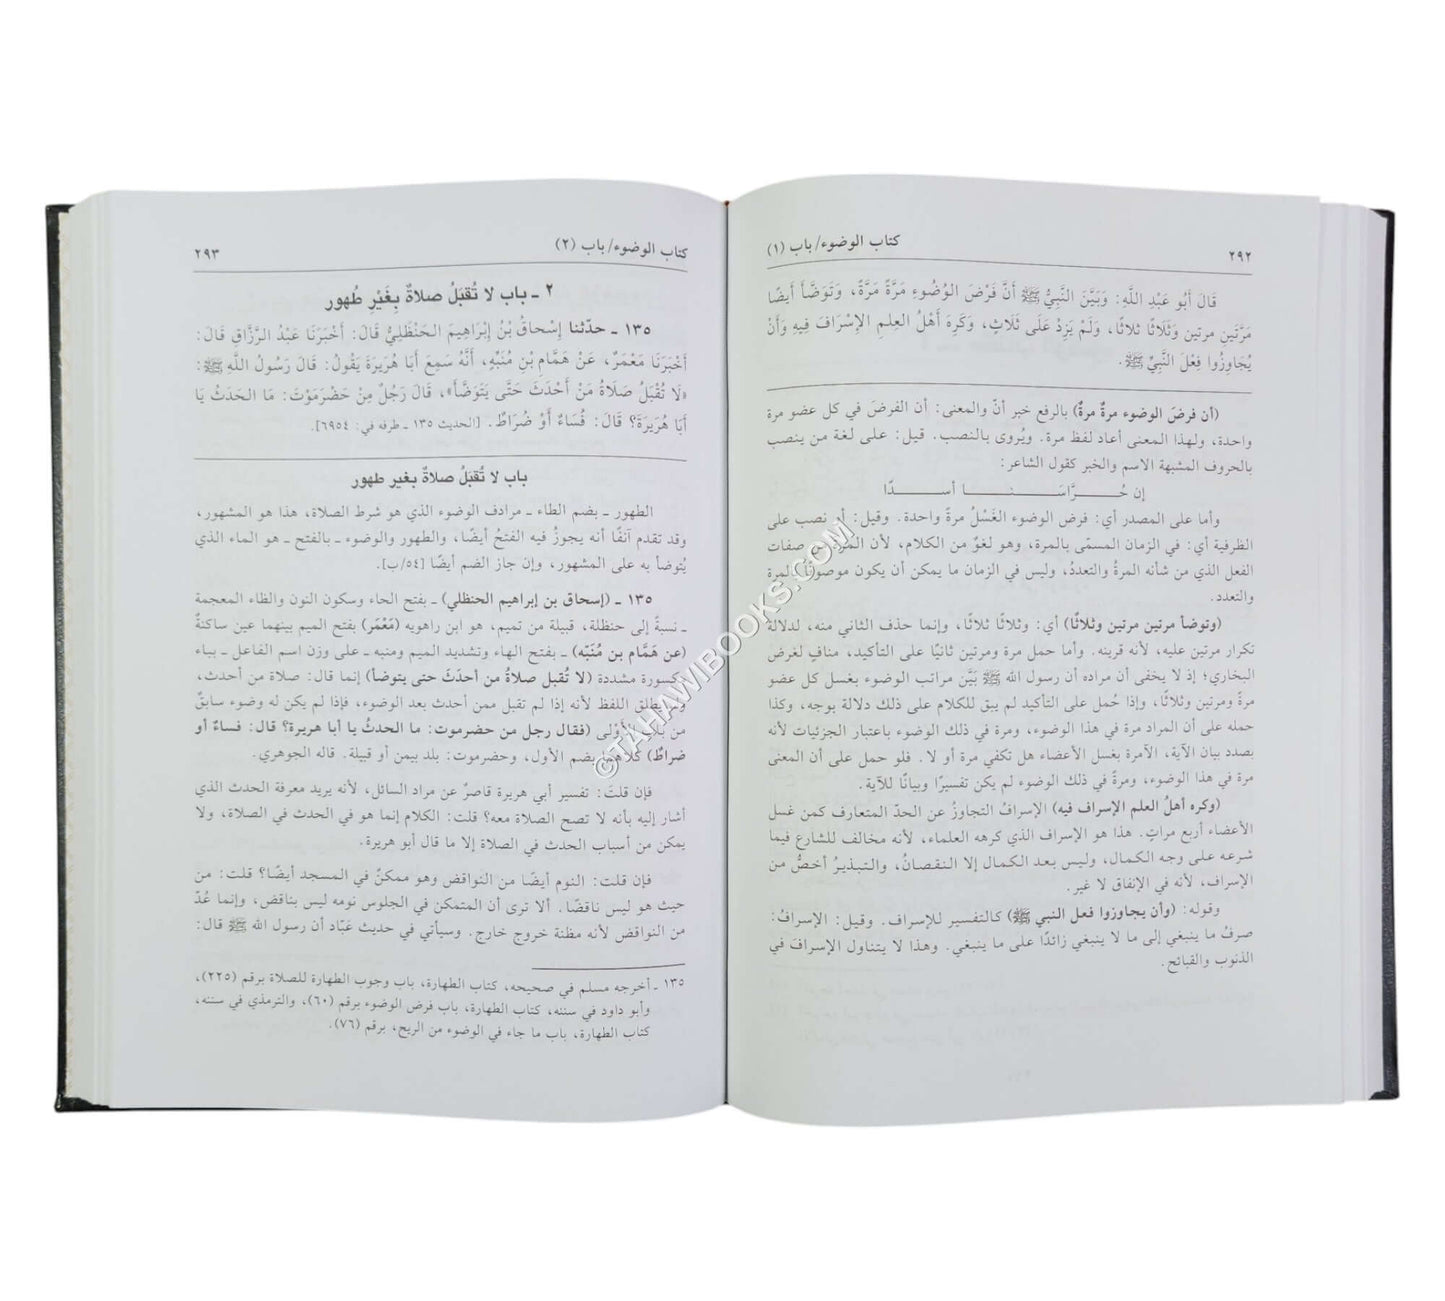 ٢٩٢
كتاب الوضوء/ باب (١)
قَالَ أَبُو عَبْدِ اللَّهِ: وَبَيَّنَ النَّبِيُّ ﷺ أَنَّ فَرْضَ الوُضُوءِ مَرَّةً مَرَّةً، وَتَوَضَّأَ أَيضًا
مَرَّتَين مرتين وَثَلَاثًا ثلاثًا، وَلَمْ يَزِدْ عَلَى ثَلَاثٍ، وَكَرِهَ أَهْلُ العِلمِ الإِسْرَافَ فِيهِ وَأَنْ
يُجَاوِزُوا فِعْلَ النَّبِيِّ ﷺ.
(أن فرضَ الوضوء مرةٌ مرةٌ) بالرفع خبر أنّ والمعنى: أن الفرضَ في كل عضو مرة
واحدة، ولهذا المعنى أعاد لفظ مرة. ويُروى بالنصب. قيل: على لغة من ينصب
بالحروف المشبهة الاسم والخبر كقول الشاعر:
إن حُرَّاسَنا أسدًا
وأما على المصدر أي: فرض الوضوء الغَسْلُ مرةً واحدة. وقيل: أو نصب على
الظرفية أي: في الزمان المسمّى بالمرة، وهو لغوٌ من الكلام، لأن المرة من صفات
الفعل الذي من شأنه المرةُ والتعددُ، وليس في الزمان ما يمكن أن يكون موصوفًا بالمرة
والتعدد.
(وتوضأ مرتين مرتين وثلاثًا) أي: وثلاثًا ثلاثًا، وإنما حذف الثاني منه، لدلالة
تكرار مرتين عليه، لأنه قرينه. وأما حمل مرة ومرتين ثانيًا على التأكيد، منافٍ لغرض
البخاري؛ إذ لا يخفى أن مراده أن رسول الله ﷺ بَيَّن مراتب الوضوء بغسل كل عضو
مرةً ومرتين وثلاثًا، وإذا حُمل على التأكيد لم يبق للكلام على ذلك دلالة بوجه، وكذا
حمله على أن المراد مرة في هذا الوضوء، ومرة في ذلك الوضوء باعتبار الجزئيات لأنه
بصدد بيان الآية، الآمرة بغسل الأعضاء هل تكفي مرة أو لا. فلو حمل على أن المعنى
مرة في هذا الوضوء، ومرةً في ذلك الوضوء لم يكن تفسيرًا وبيانًا للآية.
(وكره أهلُ العلم الإسراف فيه) الإسرافُ التجاوزُ عن الحدّ المتعارف كمن غسل
الأعضاء أربع مراتٍ. هذا هو الإسراف الذي كرهه العلماء، لأنه مخالف للشارع فيما
شرعه على وجه الكمال، وليس بعد الكمال إلا النقصانُ، والتبذيرُ أخصُّ من
الإسراف، لأنه في الإنفاق لا غير.
وقوله: (وأن يجاوزوا فعل النبي ﷺ) كالتفسير للإسراف. وقيل: الإسرافُ:
صرفُ ما ينبغي إلى ما لا ينبغي زائدًا على ما ينبغي. وهذا لا يتناول الإسرافَ في
الذنوب والقبائح.
كتاب الوضوء/ باب (٢)
٢٩٣
٢ ـ باب لا تُقبَلُ صلاةٌ بِغَيْرِ طُهور
١٣٥ ـ حدّثنا إِسْحاقُ بْنُ إِبْرَاهِيمَ الحَنْظَلِيُّ قَالَ: أَخْبَرَنَا عَبْدُ الرَّزَّاقِ قَالَ:
أَخْبَرَنَا مَعْمَرٌ، عَنْ هَمَّامِ بْنِ مُنَبِّهٍ، أَنَّهُ سَمِعَ أَبَا هُرَيرَةَ يَقُولُ: قَالَ رَسُولُ اللَّهِ ﷺ:
«لَا تُقْبَلُ صَلَاةُ مَنْ أَحْدَثَ حَتَّى يَتَوَضَّأَ»، قَالَ رَجُلٌ مِنْ حَضْرَمَوْتَ: مَا الحَدَثُ يَا
أَبَا هُرَيرَةَ؟ قَالَ: فُسَاءٌ أَوْ ضُرَاطٌ. [الحديث ١٣٥ ـ طرفه في: ٦٩٥٤].
باب لا تُقبَلُ صلاةٌ بغير طهور
الطهور ـ بضم الطاء ـ مرادف الوضوء الذي هو شرط الصلاة، هذا هو المشهور،
وقد تقدم آنفًا أنه يجوزُ فيه الفتحُ أيضًا، والطهور والوضوء ـ بالفتح ـ هو الماء الذي
يُتوضأ به على المشهور، وإن جاز الضم أيضًا [٥٤/ب].
١٣٥ ـ (إسحاق بن إبراهيم الحنظلي) ـ بفتح الحاء وسكون النون والظاء المعجمة
ـ نسبةً إلى حنظلة، قبيلة من تميم، هو ابن راهويه (مَعْمَر) بفتح الميم بينهما عين ساكنةٌ
(عن هَمَّام بن مُنَبِّه) ـ بفتح الهاء وتشديد الميم ومنبه ـ على وزن اسم الفاعل ـ بباء
مكسورة مشددة (لا تُقبل صلاةُ من أحدَثَ حتى يتوضأ) إنما قال: صلاة من أحدث،
ولم يطلق اللفظ لأنه إذا لم تقبل ممن أحدث بعد الوضوء، فإذا لم يكن له وضوء سابقٌ
من باب الأَوْلى (فقال رجل من حضرموت: ما الحدثُ يا أبا هريرة؟ قال: فساءٌ أو
ضراطٌ) كلاهما بضم الأول، وحضرموت: بلد بيمن أو قبيلة. قاله الجوهري.
فإن قلتَ: تفسير أبي هريرة قاصرٌ عن مراد السائل، لأنه يريد معرفة الحدث الذي
أشار إليه بأنه لا تصح الصلاة معه؟ قلت: الكلام إنما هو في الحدث في الصلاة، ولا
يمكن من أسباب الحدث في الصلاة إلا ما قال أبو هريرة.
فإن قلت: النوم أيضًا من النواقض وهو ممكنٌ في المسجد أيضًا؟ قلت: من
حيث هو ليس ناقضًا. ألا ترى أن المتمكن في الجلوس نومه ليس بناقض، وإنما عُدّ
من النواقض لأنه مظنة خروج خارج. وسيأتي في حديث عبّاد أن رسول الله ﷺ قال:
١٣٥ ـ أخرجه مسلم في صحيحه، كتاب الطهارة، باب وجوب الطهارة للصلاة برقم (٢٢٥)،
وأبو داود في سننه، كتاب الطهارة، باب فرض الوضوء برقم (٦٠)، والترمذي في سننه،
كتاب الطهارة، باب ما جاء في الوضوء من الريح، برقم (٧٦).
©TAHAWIBOOKS.COM